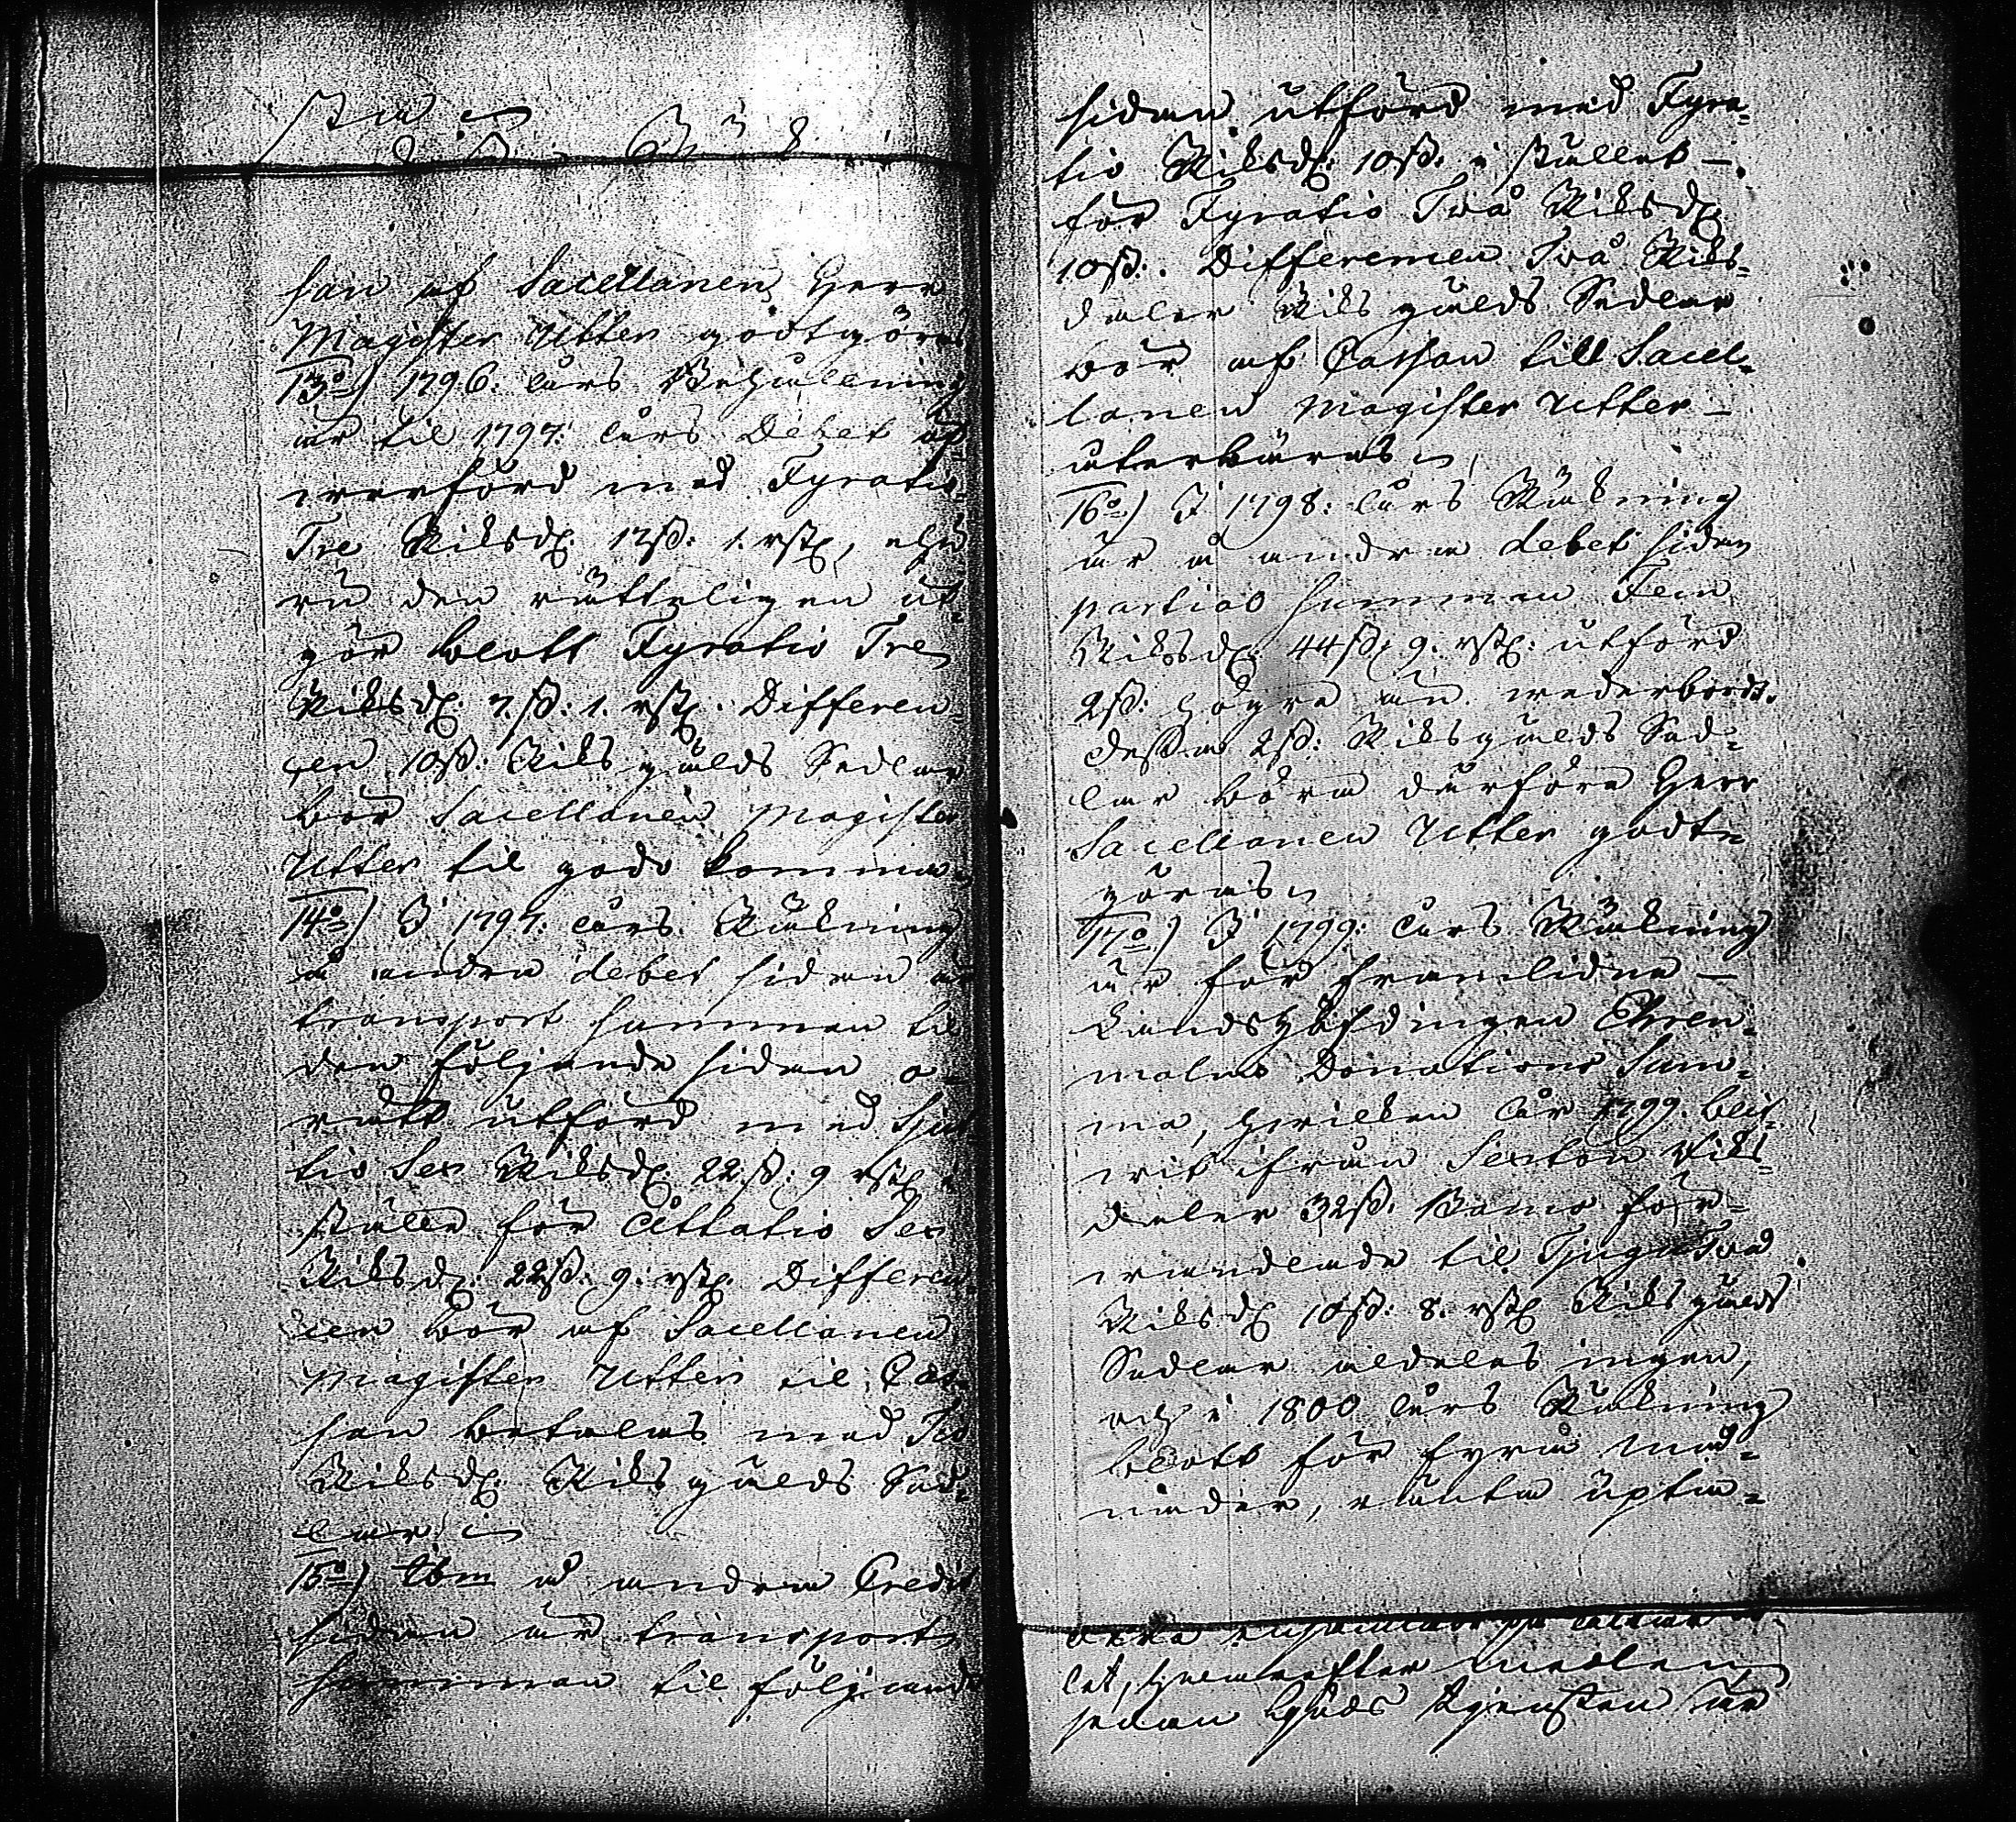 san af Sacellanen Herr
Magister Utter godtgöras
13o) 1796: års Behållning
är til 1797: års Debet öf=
werförd med Fyratio
Tre Riksdr: 17ß: 1. rst, ehu
ru den rätteligen ut=
gör blott Fyratio Tre
Riksdr: 7.ß: 1. rst. Differen=
cen 10ß: Riksgälds Sedlar
bör Sacellanen Magister
Utter til godo komma
14o) I 1797: års Räkning
å andra debet sidan är
transport summan til
den följande sidan o=
rätt utförd med Sjut
tio Sex Riksdr: 22ß: 9 rst i
ställe för Åttatio Sex
Riksdr: 22ß: 9: rst. Differen
cen bör af Sacellanen
Magister Utter til Cas=
san betalas med Tio
Riksdr: Riksgälds Sed=
lar
15o) Ibm å andra Credit
sidan är transport
summan til följande
sidan utförd med Fyra=
tio Riksdr: 10ß: i stället
för Fyratio Två Riksdr
10ß:. Differencen Två Riks=
daler Riksgälds Sedlar
bör af Cassan till Sacel=
lanen Magister Utter
återbäras
16o) I 1798: års Räkning
är å andra debet sidan
partial summan Fem
Riksdr: 44ß: 9. rst: utförd
2ß: högre än wederbordt.
Dessa 2ß: Riksgälds Sed=
lar böra därföre Herr
Sacellanen Utter godt=
göras
17o) I 1799: års Räkning
är för framlidne
Landshöfdingen Ehren=
malms Donations Sum=
ma, hwilken år 1799. blif=
wit ifrån Sexton Riks=
daler 32ß. Banco för=
wandlade til Tjugu Två
Riksdr 10ß: 8. rst Riksgälds
Sedlar aldeles ingen,
och i 1800 års Räkning
blott för fyra Må=
nader, ränta upta=
let, hwarefter medlen
sedan